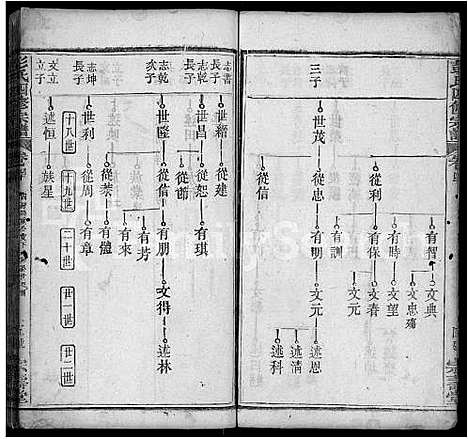 彭氏四修宗譜
三子
世茂
從利
從忠
從信
有智
有時
有保
有期
有訓
文典
文忠 殤
文望
文春
文元
文元
述恩
述清
述科
志書
長子
世縉
從建
志乾
長子
世昌
從恕
有琪
從節
志乾
次子
世隆
從信
有朋
文得
述林
有芳
有來
志坤
長子
世利
從榮
有儀
從周
有章
文立
立子
述恒
族星
十八世
十九世
二十世
廿一世
廿二世
彭氏四修宗譜